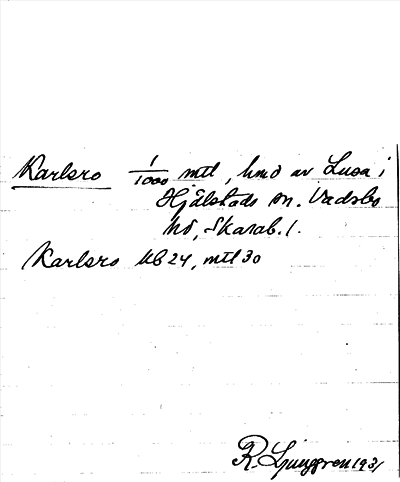 Karlsro 1/1000 mtl, hmd av Lusa i
Hjälstads sn. Vadsbo
hd, Skarab. l.
Karlsro Ub 24, mtl 30
R. Ljunggren 1931